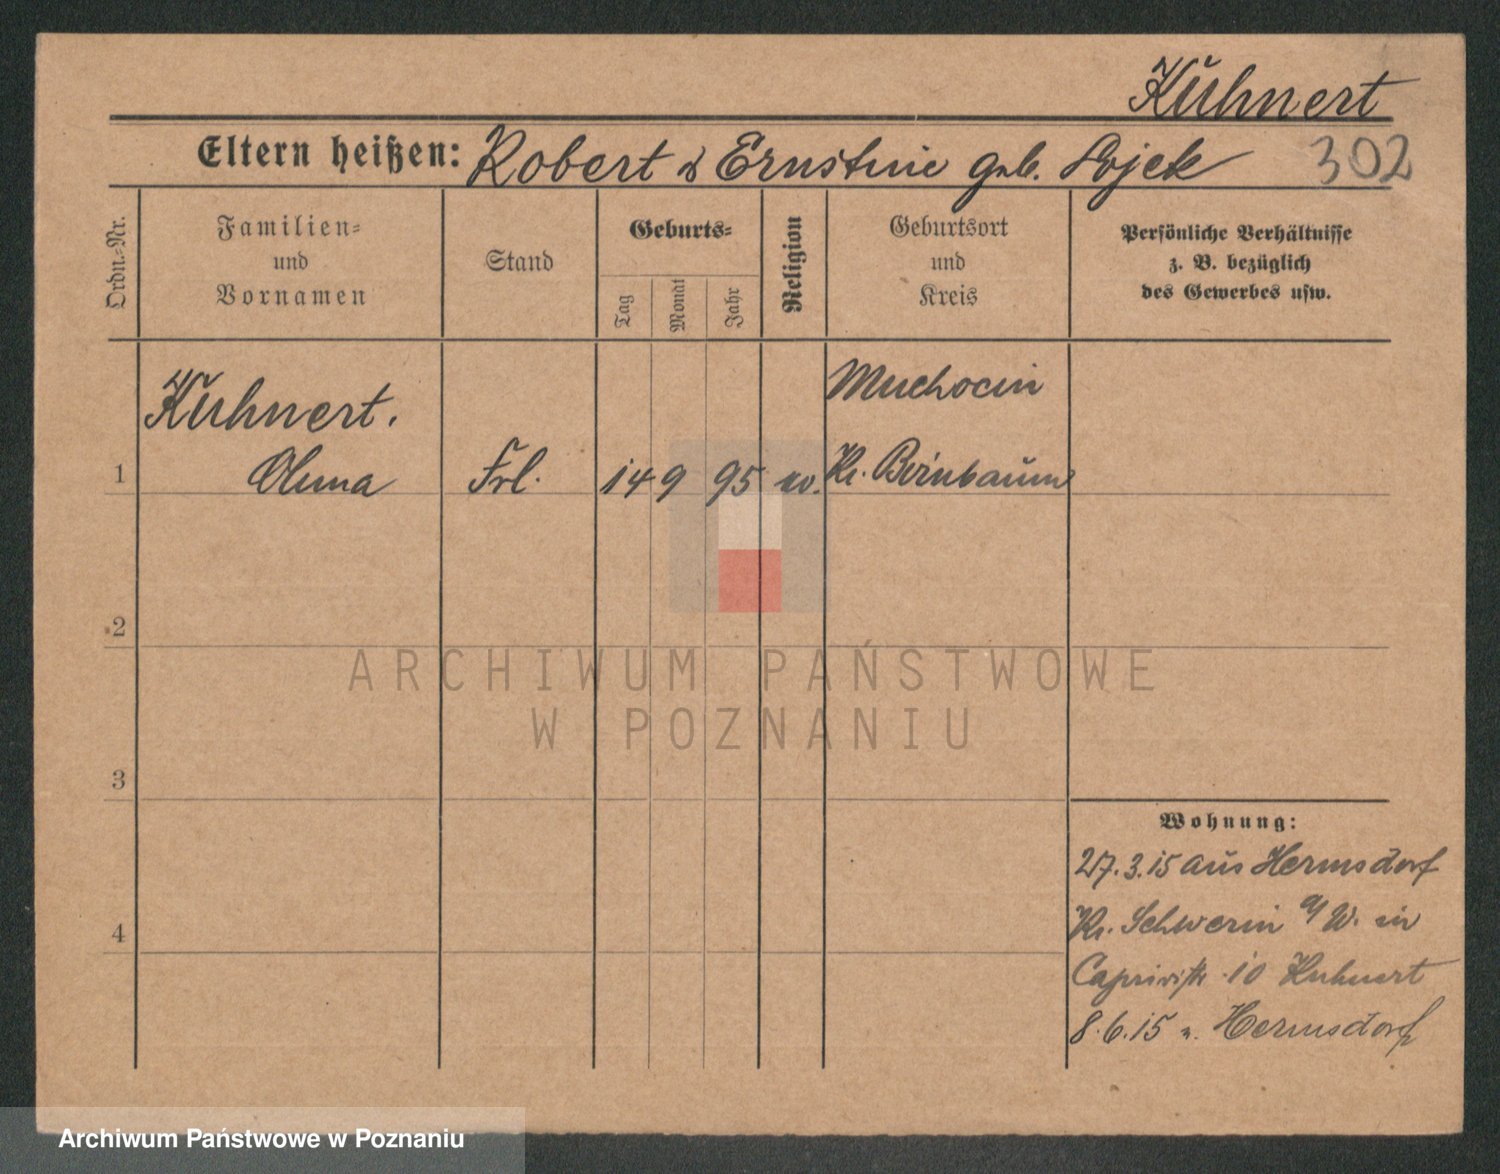 Kuhnert
302
Eltern heißen: Robert & Ernstine geb. Lojek
Ordn.=Nr.
Familien=
und
Vornamen
Stand
Geburts=
Tag
Monat
Jahr
Religion
Geburtsort
und
Kreis
Persönliche Verhältnisse
z. B. bezüglich
des Gewerbes usw.
Kuhnert.
Muchocin
1
Frl.
14 9 95
Kr. Birnbaum
2
3
4
Wohnung:
27.3.15 aus Hermsdorf
Kr. Schwerin a/W. in
Caprivistr. 10 Kuhnert
8.6.15 n. Hermsdorf
ARCHIWUM PAŃSTWOWE
W POZNANIU
Archiwum Państwowe w Poznaniu